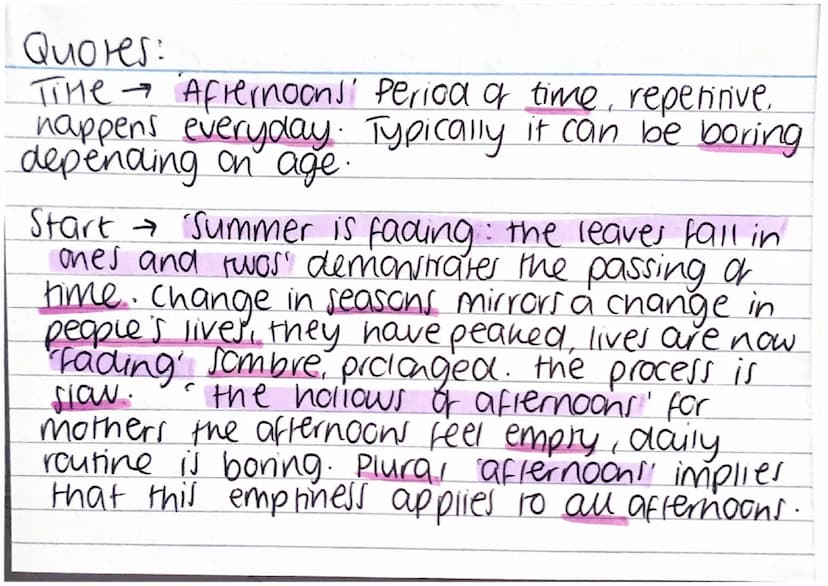 Quotes:
Title → 'Afternoons' Period of time, repetitive,
happens everyday. Typically it can be boring
depending on age.
Start → 'Summer is fading: the leaves fall in
ones and twos' demonstrates the passing of
time. Change in seasons mirrors a change in
people's lives, they have peaked, lives are now
'fading' sombre, prolonged. the process is
slow. 'the hollows of afternoons' for
mothers the afternoons feel empty, daily
routine is boring. Plural 'afternoons' implies
that this emptiness applies to all afternoons.